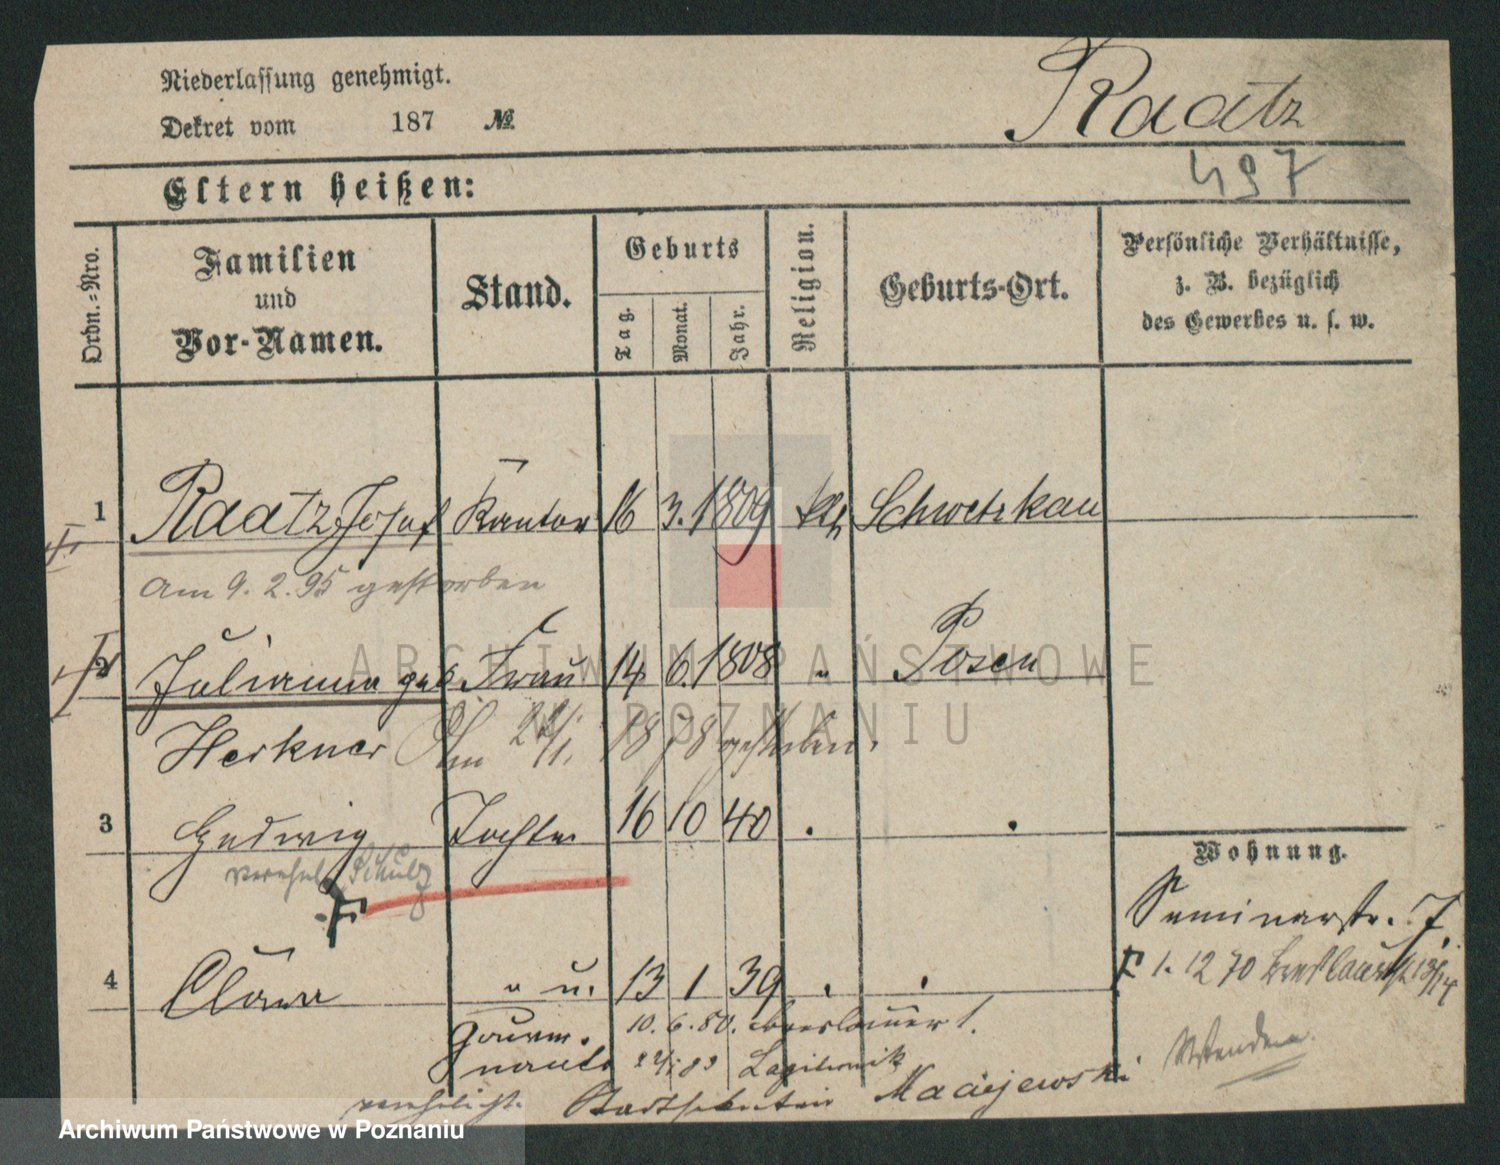 Niederlassung genehmigt.
Dekret vom 187 №
Raatz
497
Eltern heißen:
Ordn.=Nro.
Familien
und
Vor-Namen.
Stand.
Geburts
Tag.
Monat.
Jahr.
Religion.
Geburts-Ort.
Persönliche Verhältnisse,
z. B. bezüglich
des Gewerbes u. s. w.
1 Raatz Josef Kantor 16 3. 1809 kth Schwetzkau
am 9. 2. 95 gestorben
2 Julianna geb. Frau 14 6. 1808 " Posen
Herkner Am 22/1. 1878 gestorben.
3 Hedwig Tochter 16 10 40
verehel. Schulz
Wohnung.
Seminarstr. 7.
1. 12 70
4 Clara " u. 13 1 39
Gouver-
nante
10. 6. 80.
Wenden
verehelicht Maciejewski
ARCHIWUM PAŃSTWOWE
W POZNANIU
Archiwum Państwowe w Poznaniu